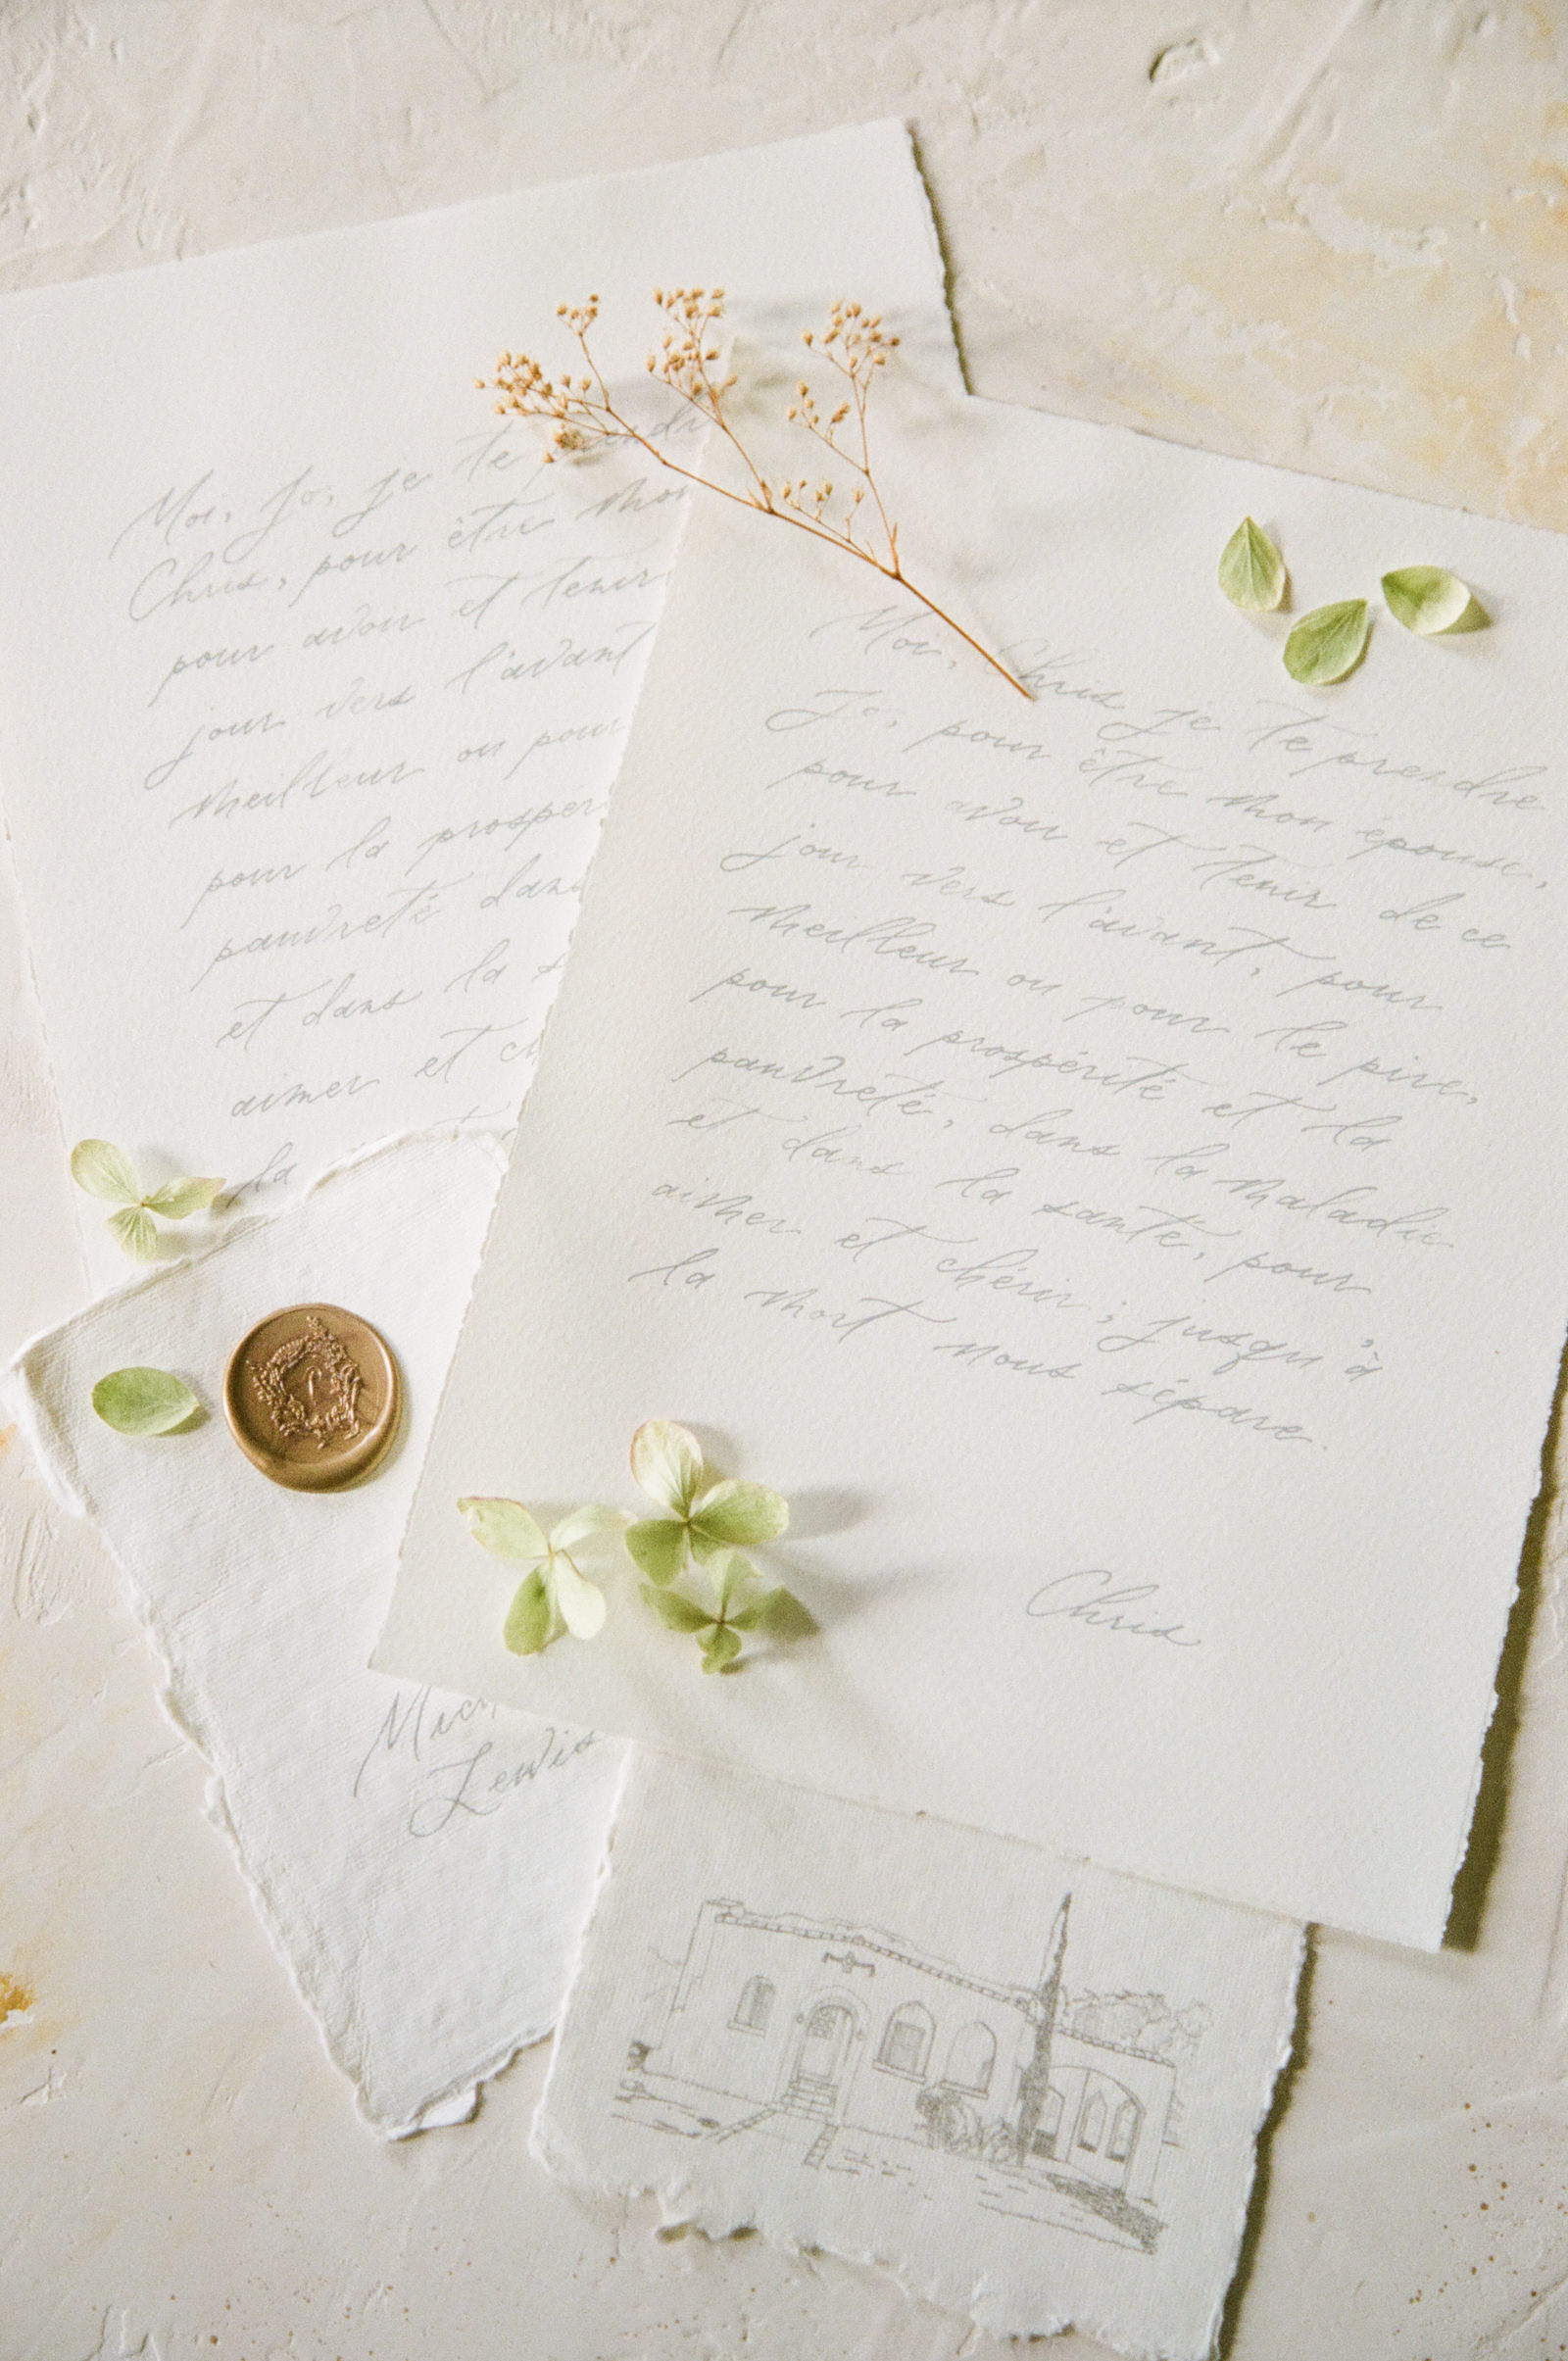 Moi, Jo, je te
Chris, pour être mon
pour avoir et tenir
jour vers l'avant
meilleur ou pour
pour la prospér
pauvreté dans
et dans la s
aimer et ch
la
Moi, Chris je te prendre
Jo, pour être mon épouse,
pour avoir et tenir de ce
jour vers l'avant, pour
meilleur ou pour le pire,
pour la prospérité et la
pauvreté, dans la maladie
et dans la santé, pour
aimer et chérir; jusqu'à
la mort nous sépare.
Chris
Lewis